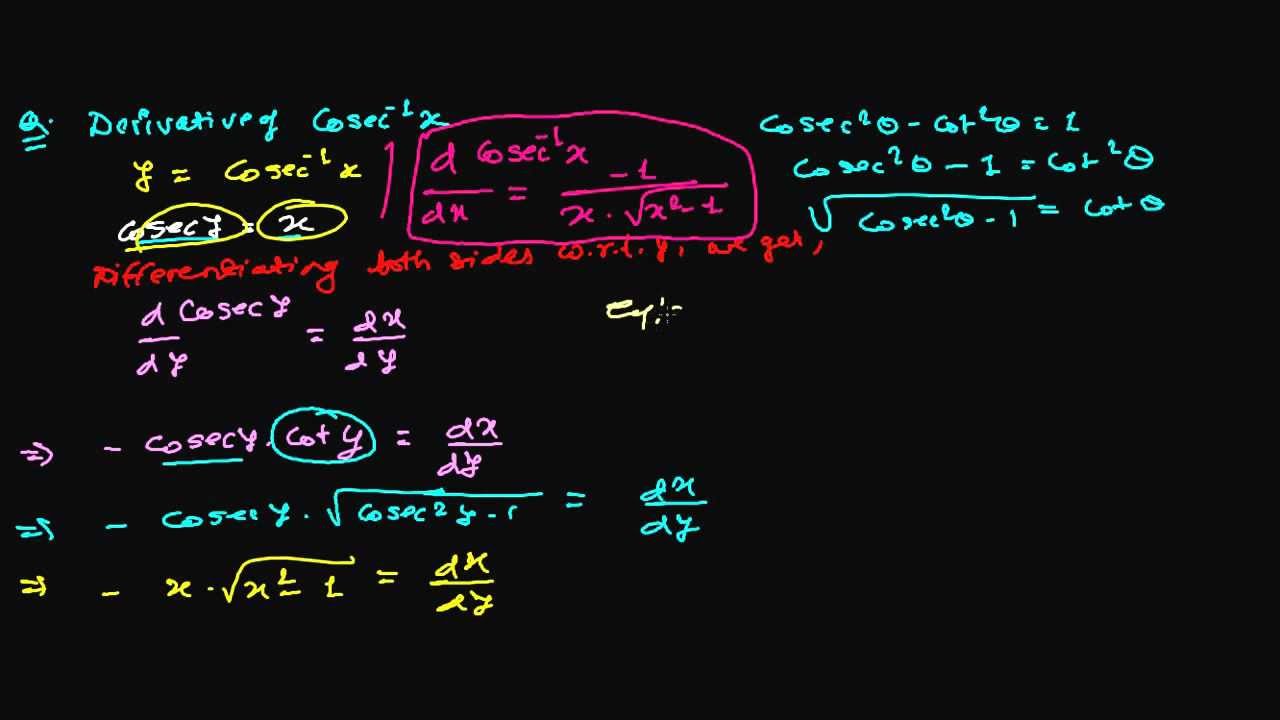 Q. Derivative of Cosec⁻¹x
y = Cosec⁻¹x
cosec y = x
d Cosec⁻¹x / dx = -1 / x·√x²-1
Cosec²θ - Cot²θ = 1
Cosec²θ - 1 = Cot²θ
√Cosec²θ-1 = Cotθ
Differentiating both sides w.r.t. y, we get,
d Cosec y / dy = dx / dy
⇒ - cosec y. cot y = dx / dy
⇒ - cosec y. √cosec²y-1 = dx / dy
⇒ - x·√x²-1 = dx / dy